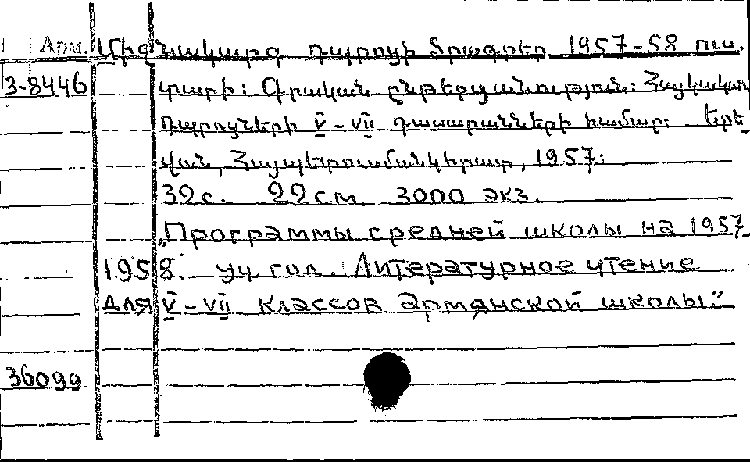 Арм. Միջնակարգ դպրոցի ծրագրեր 1957-58 ուս.
3-8446 տարի: Գրական ընթերցանություն: Հայկական
դպրոցների V-VII դասարանների համար: Երե-
վան, Հայպետուսմանկհրատ, 1957:
32 с. 22 см. 3000 экз.
„Программы средней школы на 1957-
1958. уч. год. Литературное чтение
для V-VII классов армянской школы."
36099